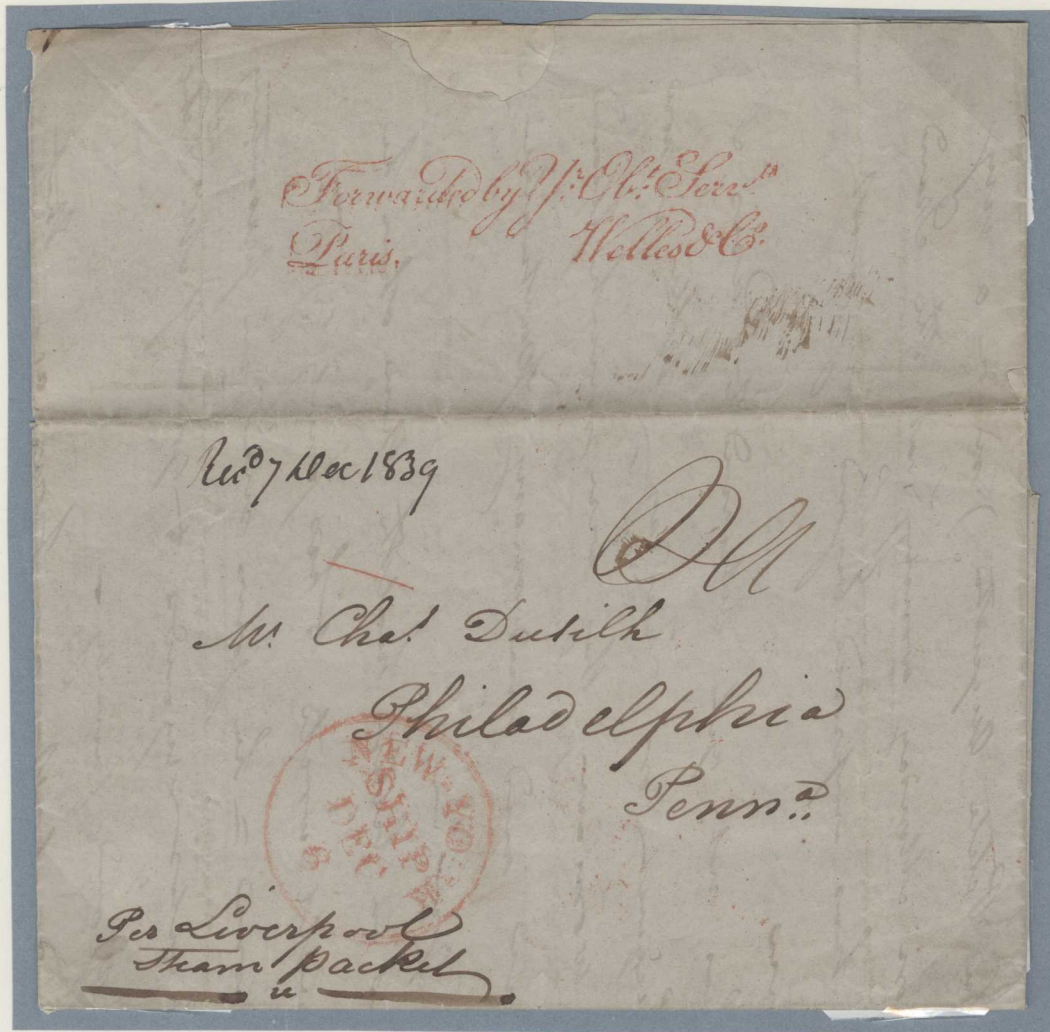 Forwarded by Yr. Obt. Servts
Paris. Welles & Co.
Recd 7 Dec 1839
Mr. Chas. Dutilh
Philadelphia
Penna.
NEW-YORK
SHIP
DEC
6
Per Liverpool
Steam Packet